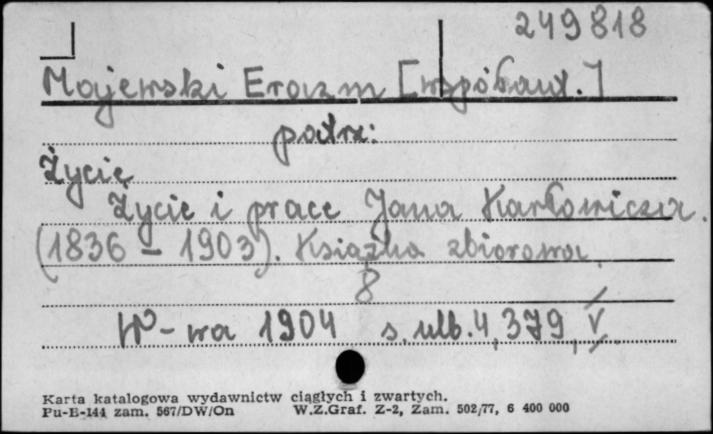 249818
Majewski Erazm [współaut.]
patrz:
Życie
Życie i prace Jana Karłowicza.
(1836 – 1903). Książka zbiorowa.
8
W-wa 1904 s. nlb. 4, 379, V.
Karta katalogowa wydawnictw ciągłych i zwartych.
Pu-E-144 zam. 567/DW/On W.Z.Graf. Z-2, Zam. 502/77, 6 400 000